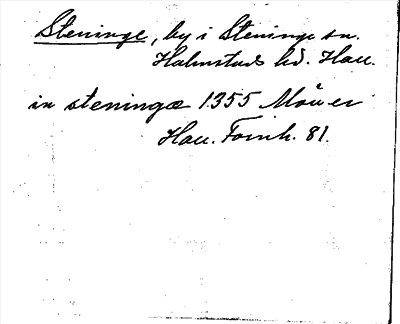 Steninge, by i Steninge sn.
Halmstads hd. Hall.
in steningæ 1355
Hall. Fornh. 81.